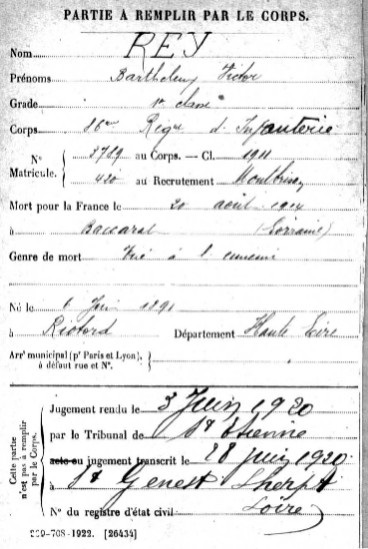 PARTIE À REMPLIR PAR LE CORPS.
Nom REY
Prénoms Barthelemy Victor
Grade 1e classe
Corps 86me Régt d'Infanterie
N° Matricule. { 3769 au Corps. — Cl. 1911
420 au Recrutement Montbrison
Mort pour la France le 20 août 1914
à Baccarat (Lorraine)
Genre de mort Tué à l'ennemi
Né le 1 Juin 1891
à Riotord Département Haute Loire
Arrt municipal (pr Paris et Lyon), à défaut rue et N°.
Cette partie n'est pas à remplir par le Corps.
Jugement rendu le 3 Juin 1920
par le Tribunal de St Etienne
acte ou jugement transcrit le 28 juin 1920
à St Genest Lherpt
Loire
N° du registre d'état civil
[26434]